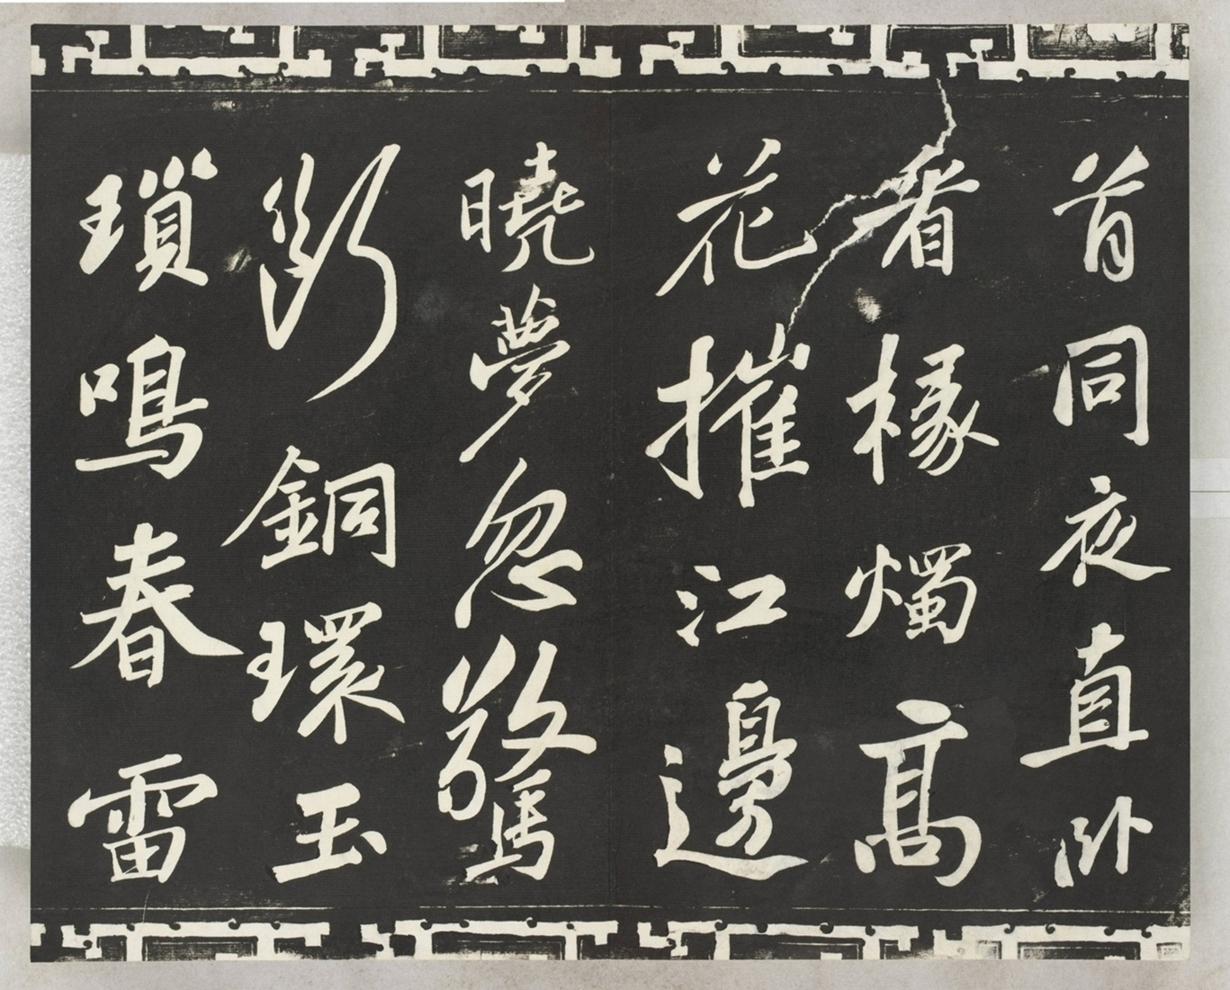 首同夜直卧
看椽燭高
花摧江邊
曉夢忽驚
斷銅環玉
瑣鳴春雷